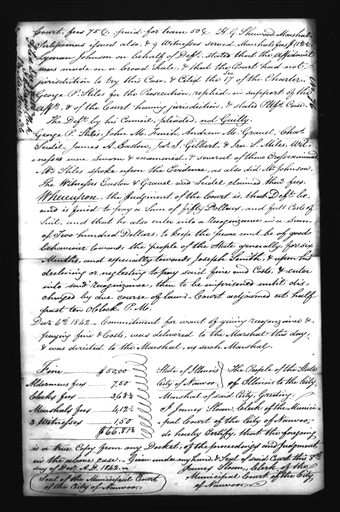 Court, fees 75¢. paid for leave 50¢. H. G. Sherwood Marshal.
Subpoenas issued also, & 7 Witnesses served. Marshals fees $1.12½
Lyman Johnson on behalf of Defᵗ. stated that the Affidavit
was made on a broad Scale, & that the Court had not
jurisdiction to try this Case, & Cited the 17 of the Charter.
George P. Stiles for the Prosecution, replied, in support of the
Affᵗ. & of the Court having jurisdiction, & stated Plffs Case.
The Defᵗ by his Council, pleaded, not Guilty.
George P. Stiles, John M. Finch, Andrew M. Gravel, Chaˢ
Sudil, James A. Easton, Joˢ I. Gilbert, & Geo. P. Stiles, Wit-
nesses were sworn & examined, & several of them Cross examined
Mʳ Stiles spoke upon the Evidence, as also did Mʳ Johnson.
The Witnesses Easton & Gravel and Sudil claimed their fees.
Whereupon, the judgment of the Court is that Defᵗ be,
and is fined to pay a Sum of fifty Dollars, and full Costs of
Suit, and that he also enter into a Recognizance in a sum
of Two hundred Dollars, to keep the peace and be of good
behaviour towards the people of the State generally for six
Months, and especially towards Joseph Smith, & upon his
declining or neglecting to pay said fine and Costs, & enter
into said recognizance, then to be imprisoned until dis-
charged by due course of law. Court adjourned at half
past ten o Clock P.M.
Decʳ 6th 1842. Commitment for want of giving Recognizance &
paying fine & Costs, was delivered to the Marshal this day,
& was directed to the Marshal, as such Marshal.
Fine $50.00
Aldermens fees 7.50
Clerks fees 3.68¾
Marshals fees 4.12½
3 Witnesses 1.50
$66.81¼
State of Illinois The People of the State
City of Nauvoo of Illinois to the City
Marshal of said City, Greeting.
I James Sloan, Clerk of the Munici-
pal Court of the City of Nauvoo,
do hereby Certify, that the foregoing
is a true Copy from my Docket, of the proceedings and judgment
in the above case. Given under my hand, & Seal of said Court this
day of Decʳ A.D. 1842.
James Sloan, Clerk of the
Municipal Court of the City
of Nauvoo.
Seal of the Municipal Court
of the City of Nauvoo